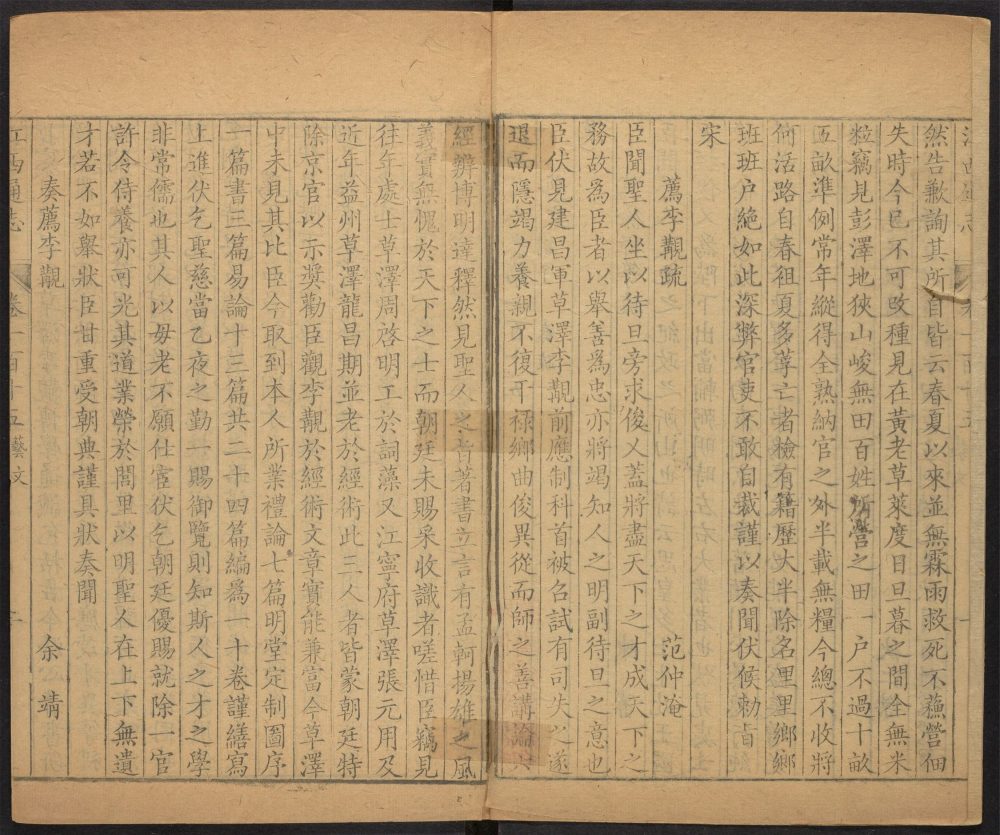 然告歉詢其所自皆云春夏以來並無霖雨救死不蘓營佃
失時今已不可改種見在黃老草萊度日旦暮之間全無米
粒竊見彭澤地狹山峻無田百姓所營之田一户不過十畝
五畝準例常年縱得全熟納官之外半載無糧今總不收將
何活路自春徂夏多莩亡者檢有籍歷大半除名里里鄉鄉
班班户絶如此深弊官吏不敢自裁謹以奏聞伏候勅旨
宋
薦李覯疏 范仲淹
臣聞聖人坐以待旦旁求俊乂蓋將盡天下之才成天下之
務故為臣者以舉善為忠亦將竭知人之明副待旦之意也
臣伏見建昌軍草澤李覯前應制科首被召試有司失之遂
退而隱竭力養親不復干禄鄉曲俊異從而師之善講論六
經辨博明達釋然見聖人之旨著書立言有孟軻揚雄之風
義實無愧於天下之士而朝廷未賜采收識者嗟惜臣竊見
往年處士草澤周啓明工於詞藻又江寧府草澤張元用及
近年益州草澤龍昌期並老於經術此三人者皆蒙朝廷特
除京官以示奬勸臣觀李覯於經術文章實能兼富今草澤
中未見其比臣今取到本人所業禮論七篇明堂定制圖序
一篇書三篇易論十三篇共二十四篇編為一十卷謹繕寫
上進伏乞聖慈當乙夜之勤一賜御覽則知斯人之才之學
非常儒也其人以母老不願仕宦伏乞朝廷優賜就除一官
許令侍養亦可光其道業榮於閭里以明聖人在上下無遺
才若不如舉狀臣甘重受朝典謹具狀奏聞
奏薦李覯 余靖
江西通志 卷一百十五藝文 二